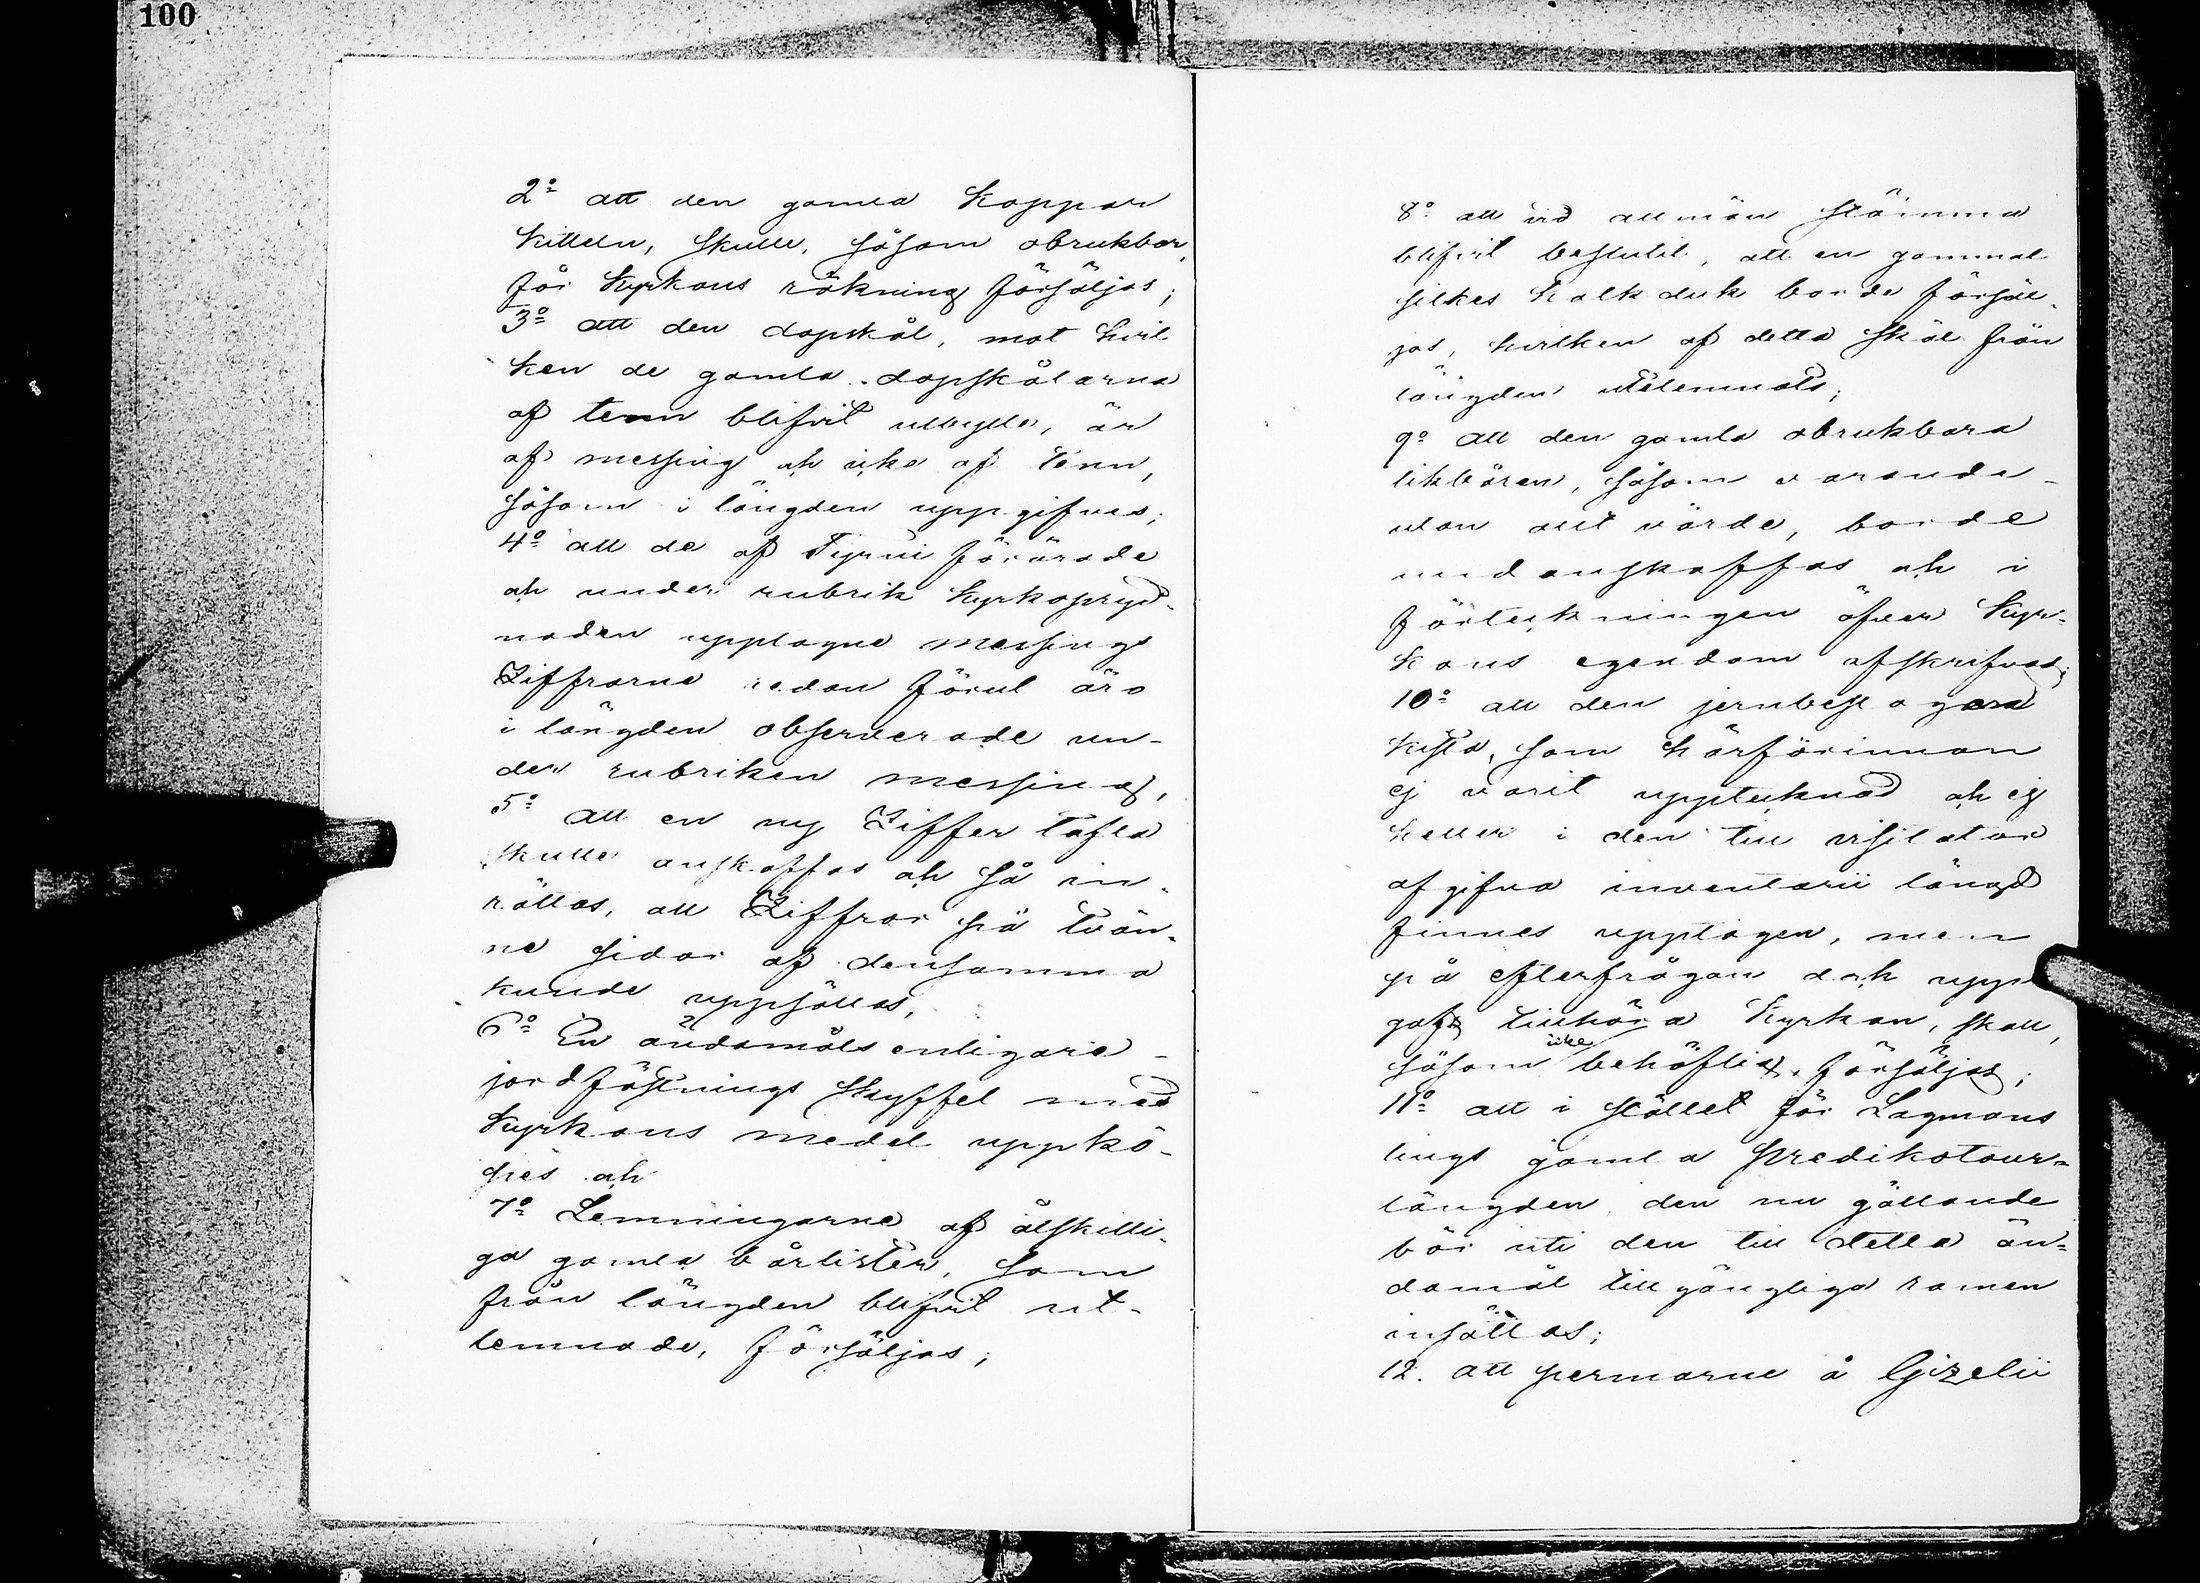 100
2:o att den gamla Koppar
kitteln, skulle, såsom obrukbar,
för Kyrkans räkning försäljas;
3:o att den dopskål, mot hvil
ken de gamla dopskålarna
af tenn blifvit utbytte, är
af messing och icke af tenn,
såsom i längden uppgifves;
4:o att de af Tyrni förärade
och under rubrik Kyrkopryd-
naden upptagne messings
Ziffrorne redan förut äro
i längden observerade un-
der rubriken messing,
5:o att en ny Ziffer tafla
skulle anskaffas och så in-
rättas, att Ziffror på tvän-
ne sidor af densamma
kunde uppsättas,
6:o En ändamåls enligare
jordfästnings skyffel med
Kyrkans medel uppkö-
pes och
7:o Lemningarne af åtskilli-
ga gamla bårlister, som
från längden blifvit ut-
lemnade, försäljas;
8:o att vid allmän stämma
blifvit beslutit, att en gammal
silkes kalkduk borde försäl-
jas, hvilken af detta skäl från
längden utelemnats;
9:o att den gamla obrukbara
likbåren, såsom varande
utan allt värde, borde
undanskaffas och i
förteckningen öfver Kyr-
kans egendom afskrifvas;
10:o att den jernbeslagena
kista, som härförinnan
ej varit upptecknad och ej
heller i den till visitator
afgifna inventarii längd
finnes upptagen, men
på efterfrågan dock upp
gafs tillhöra Kyrkan, skall,
såsom icke behöflig, försäljas;
11:o att i stället för Lagmans
tings gamla predikoturs-
längden den nu gällande
bör uti den till detta än-
damål tillgängliga ramen
insättas;
12. att permarne å Gezelii